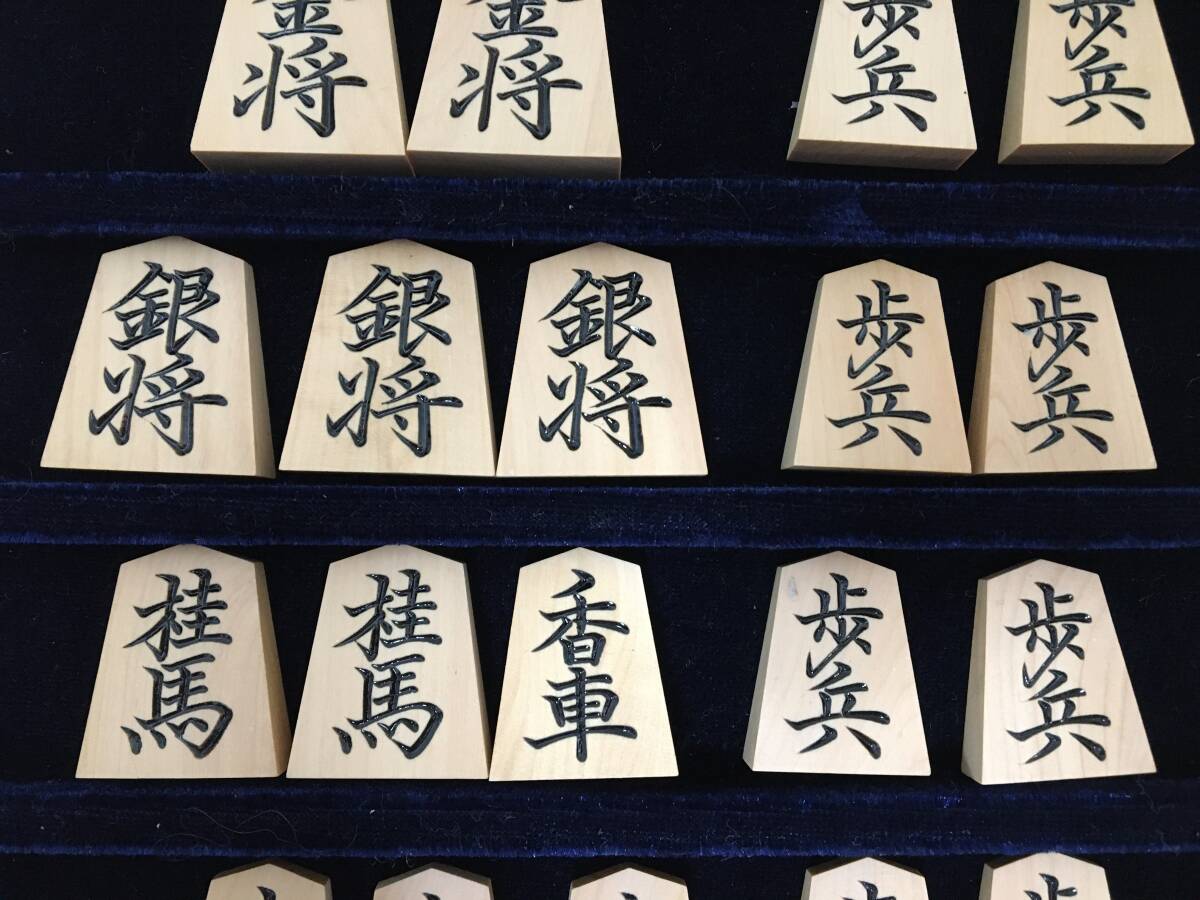 金将 金将 歩兵 歩兵
銀将 銀将 銀将 歩兵 歩兵
桂馬 桂馬 香車 歩兵 歩兵